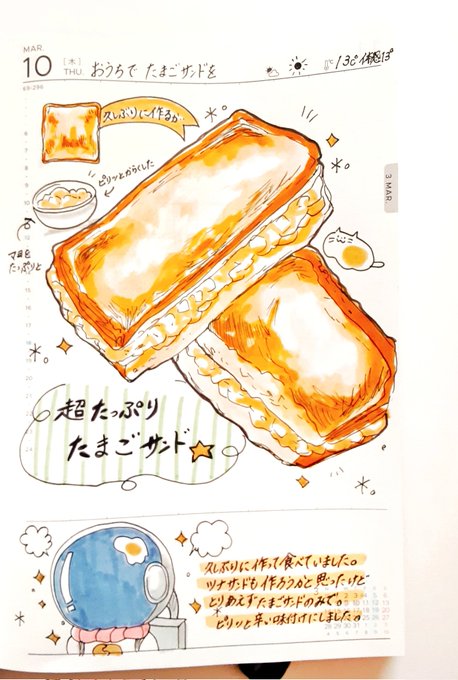 MAR.
10 [木] THU.
おうちで たまごサンドを
13℃ 体感13°
69-296
久しぶりに作るか
ピリッとからくした
マヨを
たっぷりと
3 MAR.
超たっぷり
たまごサンド
久しぶりに作って食べていました。
ツナサンドも作ろうかと思ったけど
とりあえずたまごサンドのみで。
ピリッと辛い味付けにしました。